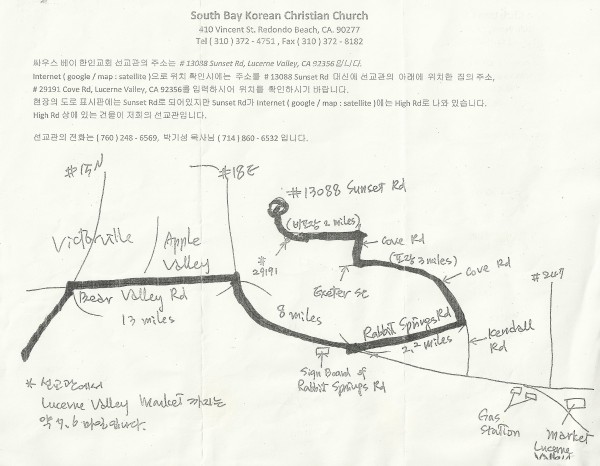 South Bay Korean Christian Church
410 Vincent St. Redondo Beach, CA. 90277
Tel ( 310 ) 372 - 4751 , Fax ( 310 ) 372 - 8182
싸우스 베이 한인교회 선교관의 주소는 # 13088 Sunset Rd, Lucerne Valley, CA 92356입니다.
Internet ( google / map : satellite )으로 위치 확인시에는 주소를 # 13088 Sunset Rd 대신에 선교관의 아래에 위치한 집의 주소,
# 29191 Cove Rd, Lucerne Valley, CA 92356를 입력하시어 위치를 확인하시기 바랍니다.
현장의 도로 표시판에는 Sunset Rd로 되어있지만 Sunset Rd가 Internet ( google / map : satellite )에는 High Rd로 나와 있습니다.
High Rd 상에 있는 건물이 저희의 선교관입니다.
선교관의 전화는 ( 760 ) 248 - 6569, 박기성 목사님 ( 714 ) 860 - 6532 입니다.
#15N
#18E
#13088 Sunset Rd
(비포장 2 miles)
Victorville
Apple
Valley
Cove Rd
(포장 3 miles)
#
29191
Cove Rd
Exeter St
#247
Bear Valley Rd
13 miles
8 miles
Rabbit Springs Rd
2.2 miles
Kendall
Rd
Sign Board of
Rabbit Springs Rd
* 선교관에서
Lucerne Valley Market 까지는
약 7.6 마일입니다.
Gas
Station
Market
Lucerne